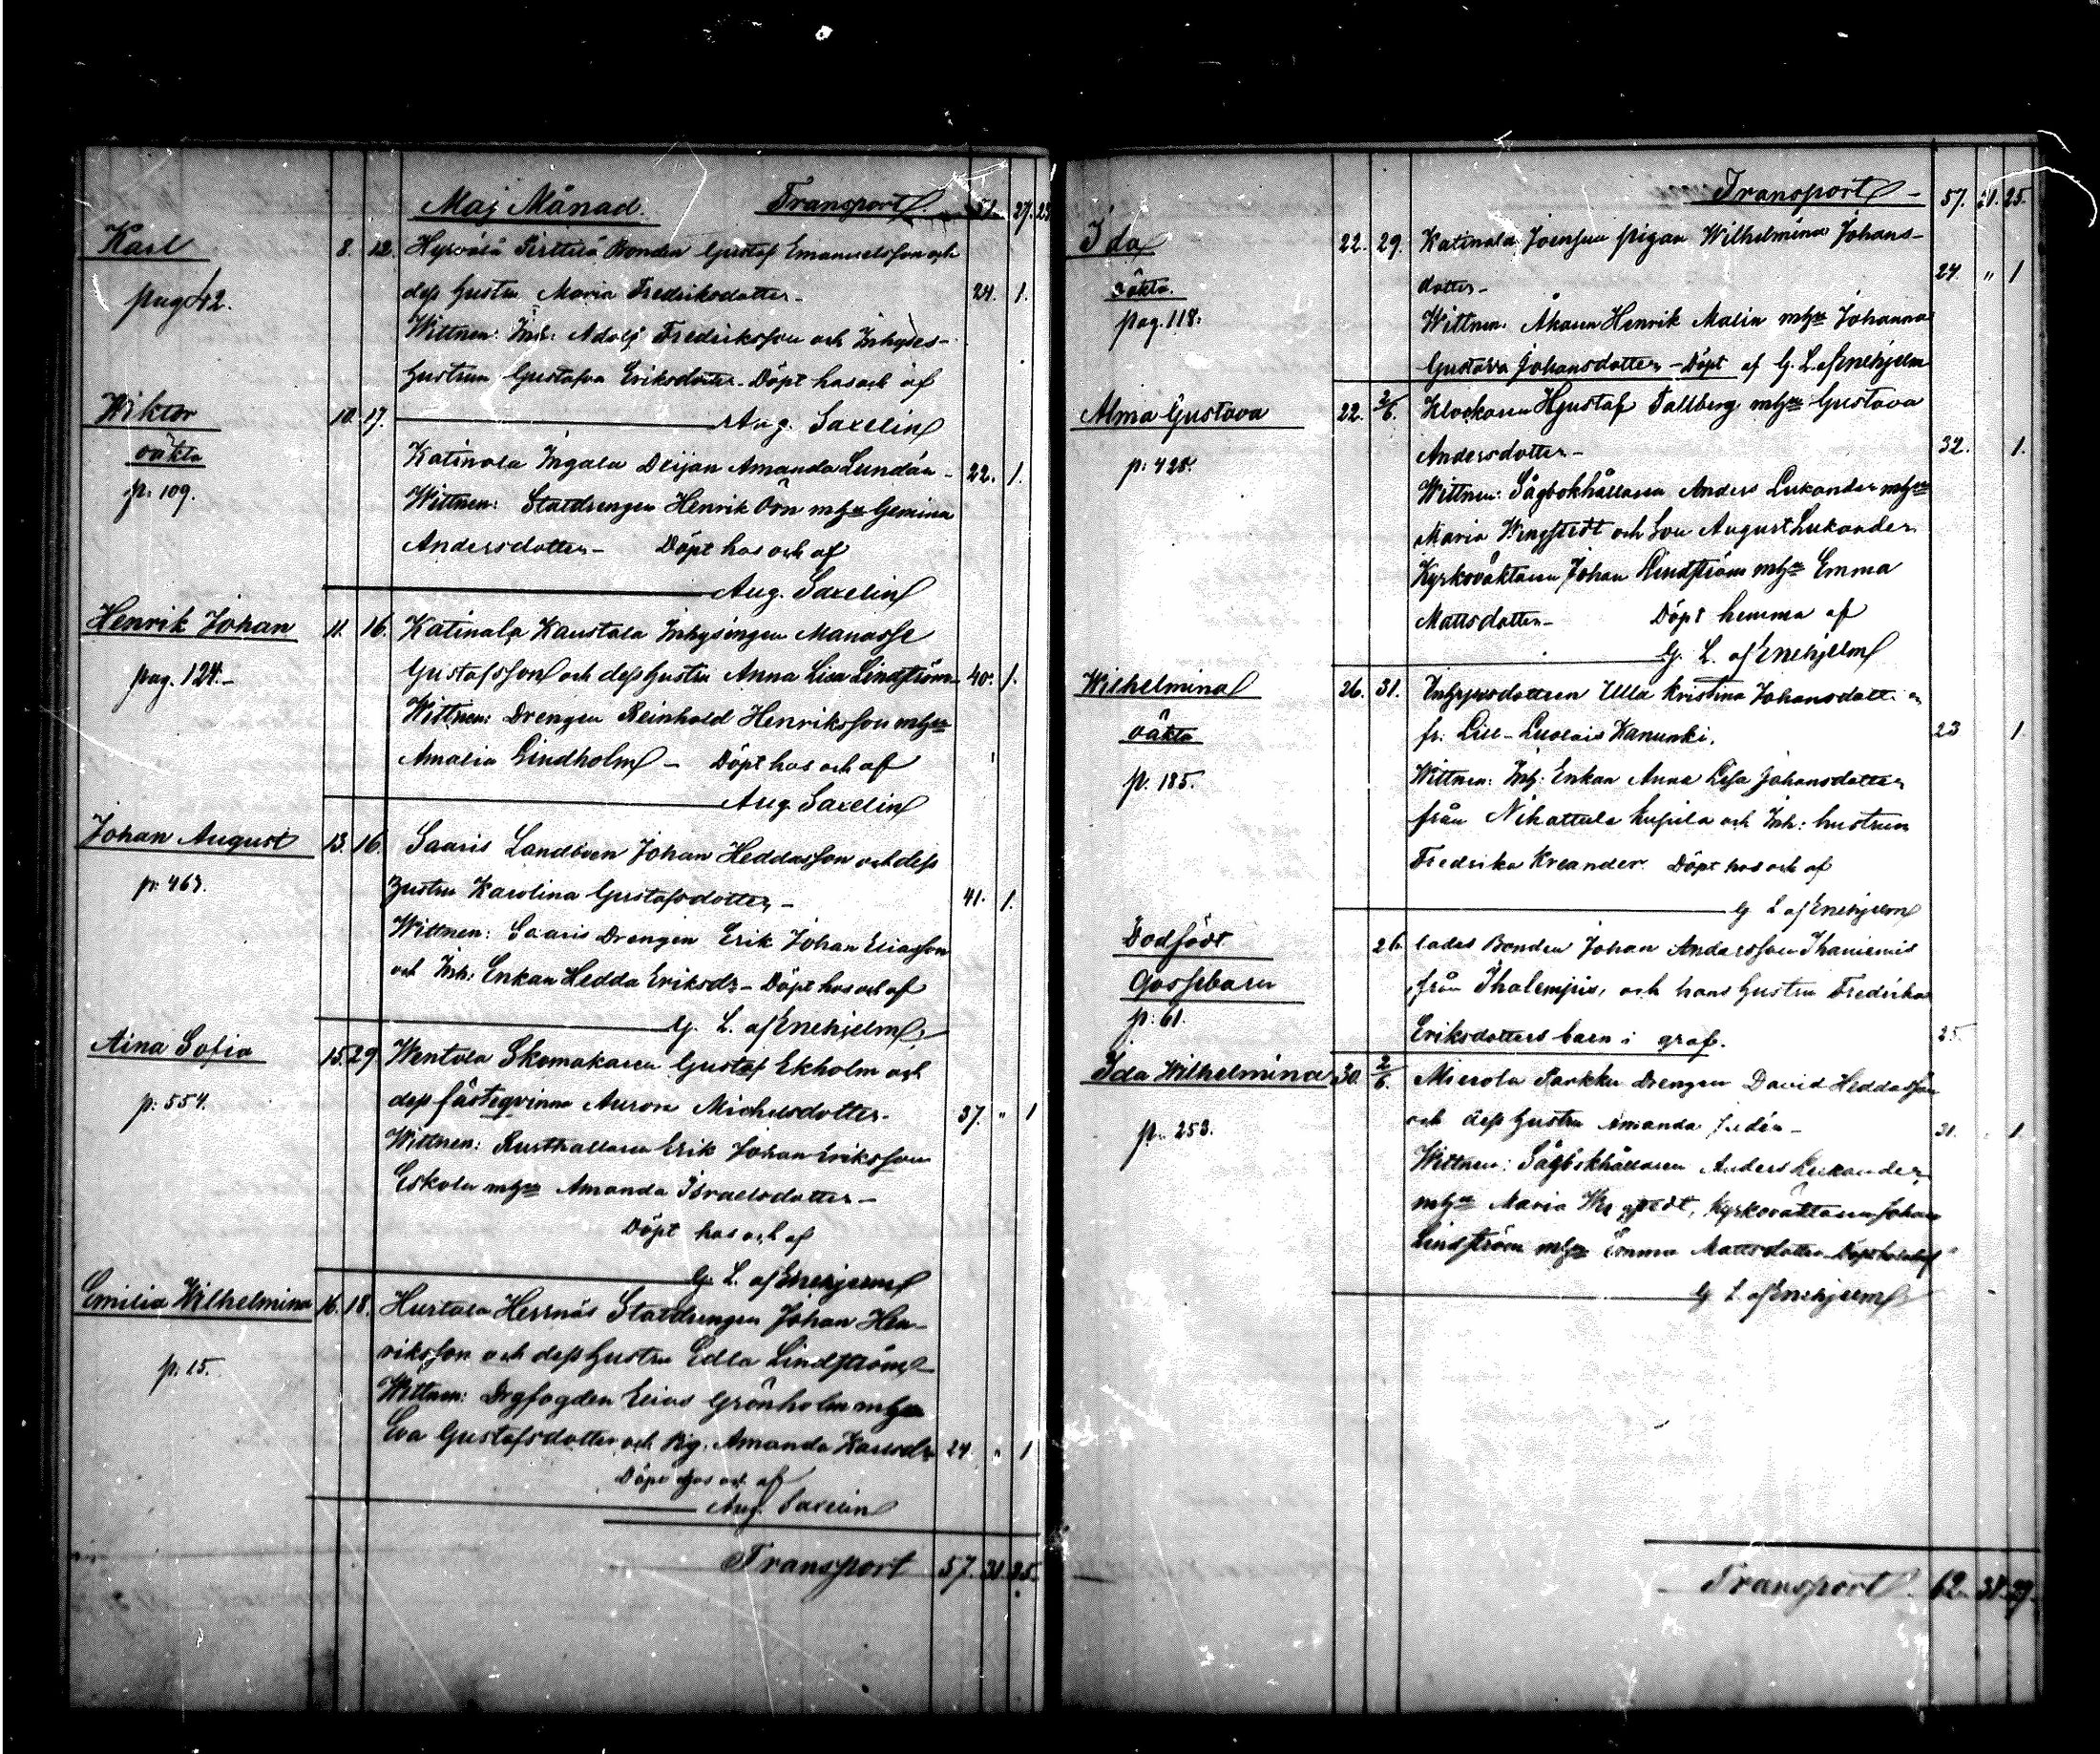 Maj Månad. Transport 51. 27. 24
Karl 8. 12. Hyrvälä Pirttilä Bonden Gustaf Emanuelsson och
pag 42. dess hustru Maria Fredriksdotter - 24. 1.
Wittnen: Inh: Adolf Fredriksson och Inhyses-
hustrun Gustafva Eriksdotter. Döpt hos och af
Aug. Saxelin
Wiktor 10. 17.
oäkta
p. 109.
Katinala Ingala Deijan Amanda Lundén - 22. 1.
Wittnen: Statdrengen Henrik Örn mhu Gemina
Andersdotter - Döpt hos och af
Aug. Saxelin
Henrik Johan 11. 16. Katinala Kaustala Inhysingen Manasse
pag. 124.- Gustafsson och dess hustru Anna Lisa Lindström - 40. 1.
Wittnen: Drengen Reinhold Henriksson mhu
Amalia Lindholm - Döpt hos och af
Aug. Saxelin
Johan August 13. 16. Saaris Landboen Johan Heddasson och dess
p. 463. hustru Karolina Gustafsdotter - 41. 1.
Wittnen: Saaris Drengen Erik Johan Eliasson
och Inh: Enkan Hedda Eriksdr - Döpt hos och af
G. L. af Enehjelm
Aina Sofia 15. 29. Wentola Skomakaren Gustaf Ekholm och
p: 554. dess fästeqvinna Aurora Michelsdotter. 37. " 1
Wittnen: Rusthållaren Erik Johan Eriksson
Eskola mhu Amanda Israelsdotter -
Döpt hos och af
G. L. af Enehjelm
Emilia Wilhelmina 16. 18. Hurtala Herrnäs Statdrengen Johan Hen-
p. 15. riksson och dess hustru Edla Lindström -
Wittnen: Drgfogden Elias Grönholm mhu
Eva Gustafsdotter och Pig. Amanda Karlsdr 24. " 1
Döpt hos och af
Aug. Saxelin
Transport 57. 31. 25.
Transport - 57. 31. 25.
Ida 22. 29. Katinala Joensuu pigan Wilhelmina Johans-
oäkta. dotter - 24. " 1
pag. 118. Wittnen: Åkaren Henrik Malin mhu Johanna
Gustava Johansdotter - Döpt af G. L. af Enehjelm
Alma Gustava 22. 2/6. Klockaren Hgustaf Tallberg mhu Gustava
p. 428. Andersdotter - 32. 1.
Wittnen: Sågbokhållaren Anders Lukander mhu
Maria Wengstedt och Son August Lukander
Kyrkovaktaren Johan Lindström mhu Emma
Mattsdotter - Döpt hemma af
G. L. af Enehjelm
Wilhelmina 26. 31. Inhysesdottren Ulla Kristina Johansdotter
oäkta fr: Lill-Luolais Kanunki. 23 1
p. 185. Wittnen: Inh: Enkan Anna Lisa Johansdotter
från Nihattula Kupila och Inh: hustrun
Fredrika Kreander. Döpt hos och af
G L af Enehjelm
Dödfödt 26. lades Bonden Johan Andersson Ihaniemis
Gossebarn från Ihalempis, och hans hustru Fredrika
p. 61. Eriksdotters barn i graf. 25.
Ida Wilhelmina 30. 2/6. Mierola Parkku Drengen David Heddasson
p. 253. och dess hustru Amanda - 31. 1.
Wittnen: Sågbokhållaren Anders Lukander
mhu Maria Wengstedt, Kyrkovaktaren Johan
Lindström mhu Emma Mattsdotter Döpt hos och af
G L af Enehjelm
Transport 62. 31. 29.